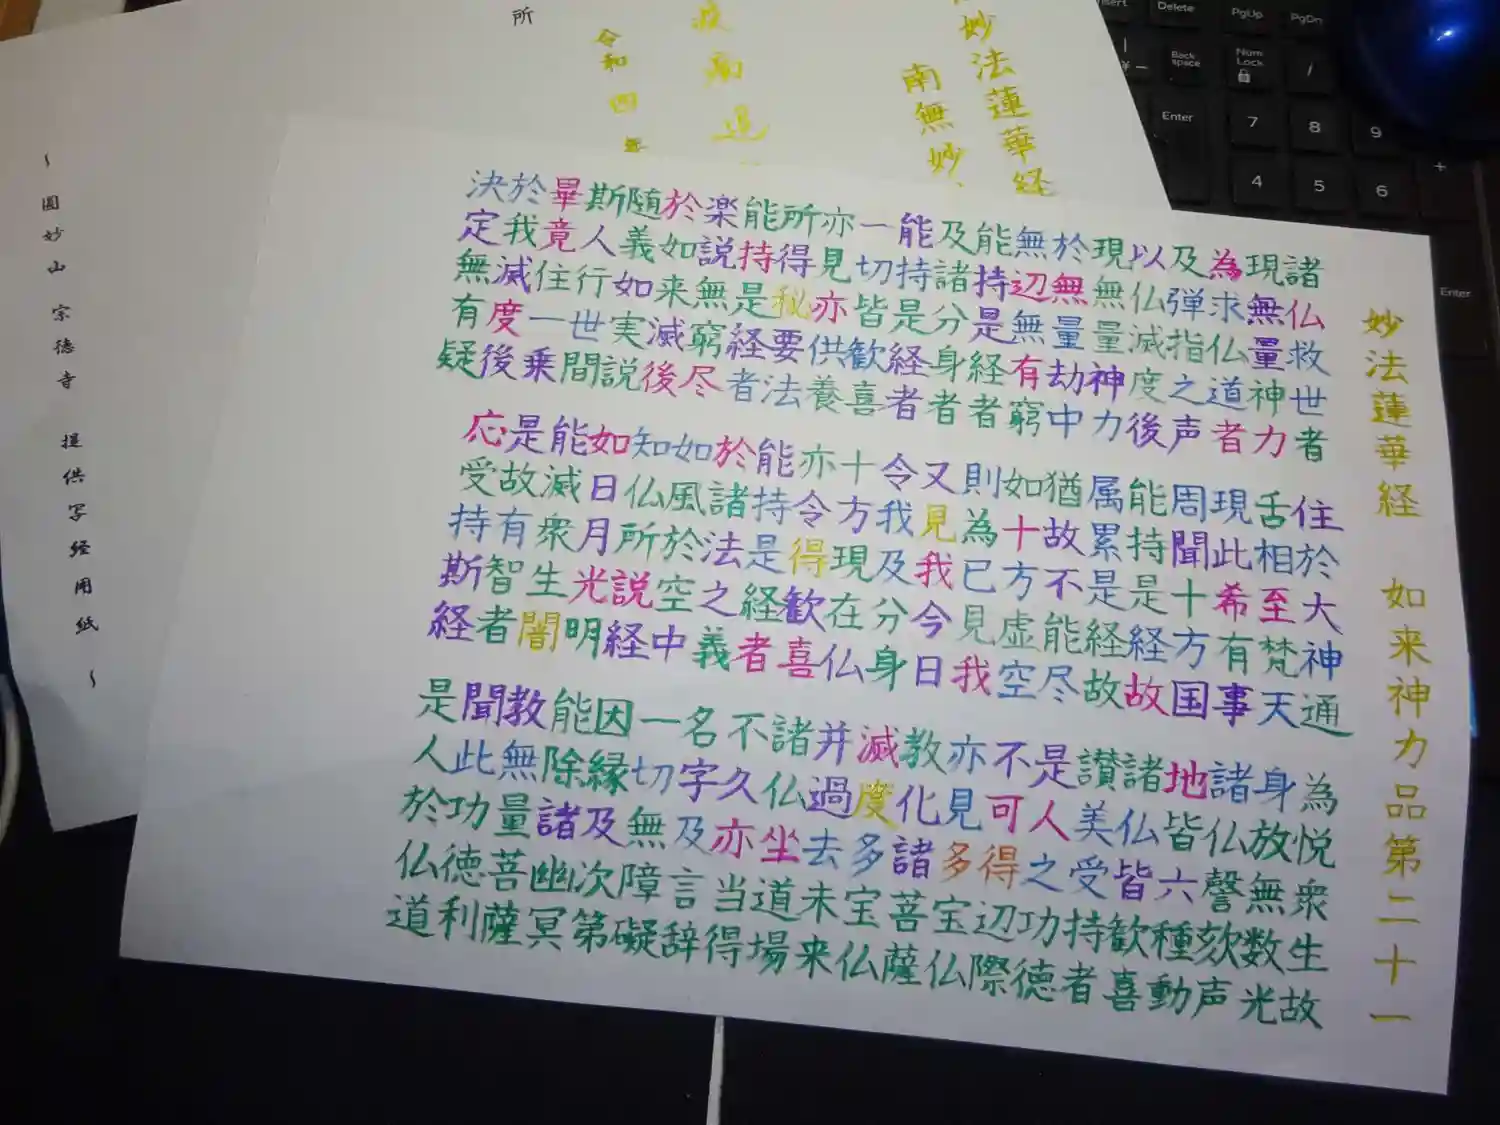 妙法蓮華経　如来神力品第二十一
諸仏救世者　住於大神通　為悦衆生故
現無量神力　舌相至梵天　身放無数光
為求仏道者　現此希有事　諸仏謦欬声
及弾指之声　周聞十方国　地皆六種動
以仏滅度後　能持是経故　諸仏皆歓喜
現無量神力　属累是経故　讃美受持者
於無量劫中　猶故不能尽　是人之功徳
無辺無有窮　如十方虚空　不可得辺際
能持是経者　則為已見我　亦見多宝仏
及諸分身者　又見我今日　教化諸菩薩
能持是経者　令我及分身　滅度多宝仏
一切皆歓喜　十方現在仏　并過去未来
亦見亦供養　亦令得歓喜　諸仏坐道場
所得秘要法　能持是経者　不久亦当得
能持是経者　於諸法之義　名字及言辞
楽説無窮尽　如風於空中　一切無障礙
於如来滅後　知仏所説経　因縁及次第
随義如実説　如日月光明　能除諸幽冥
斯人行世間　能滅衆生闇　教無量菩薩
畢竟住一乗　是故有智者　聞此功徳利
於我滅度後　応受持斯経　是人於仏道
決定無有疑
妙法蓮華経
南無妙
令和四
所
～圓妙山　宗徳寺　提供写経用紙～
Delete
PgUp
PgDn
Back space
Num Lock
/
Enter
7
8
9
+
4
5
6
Enter